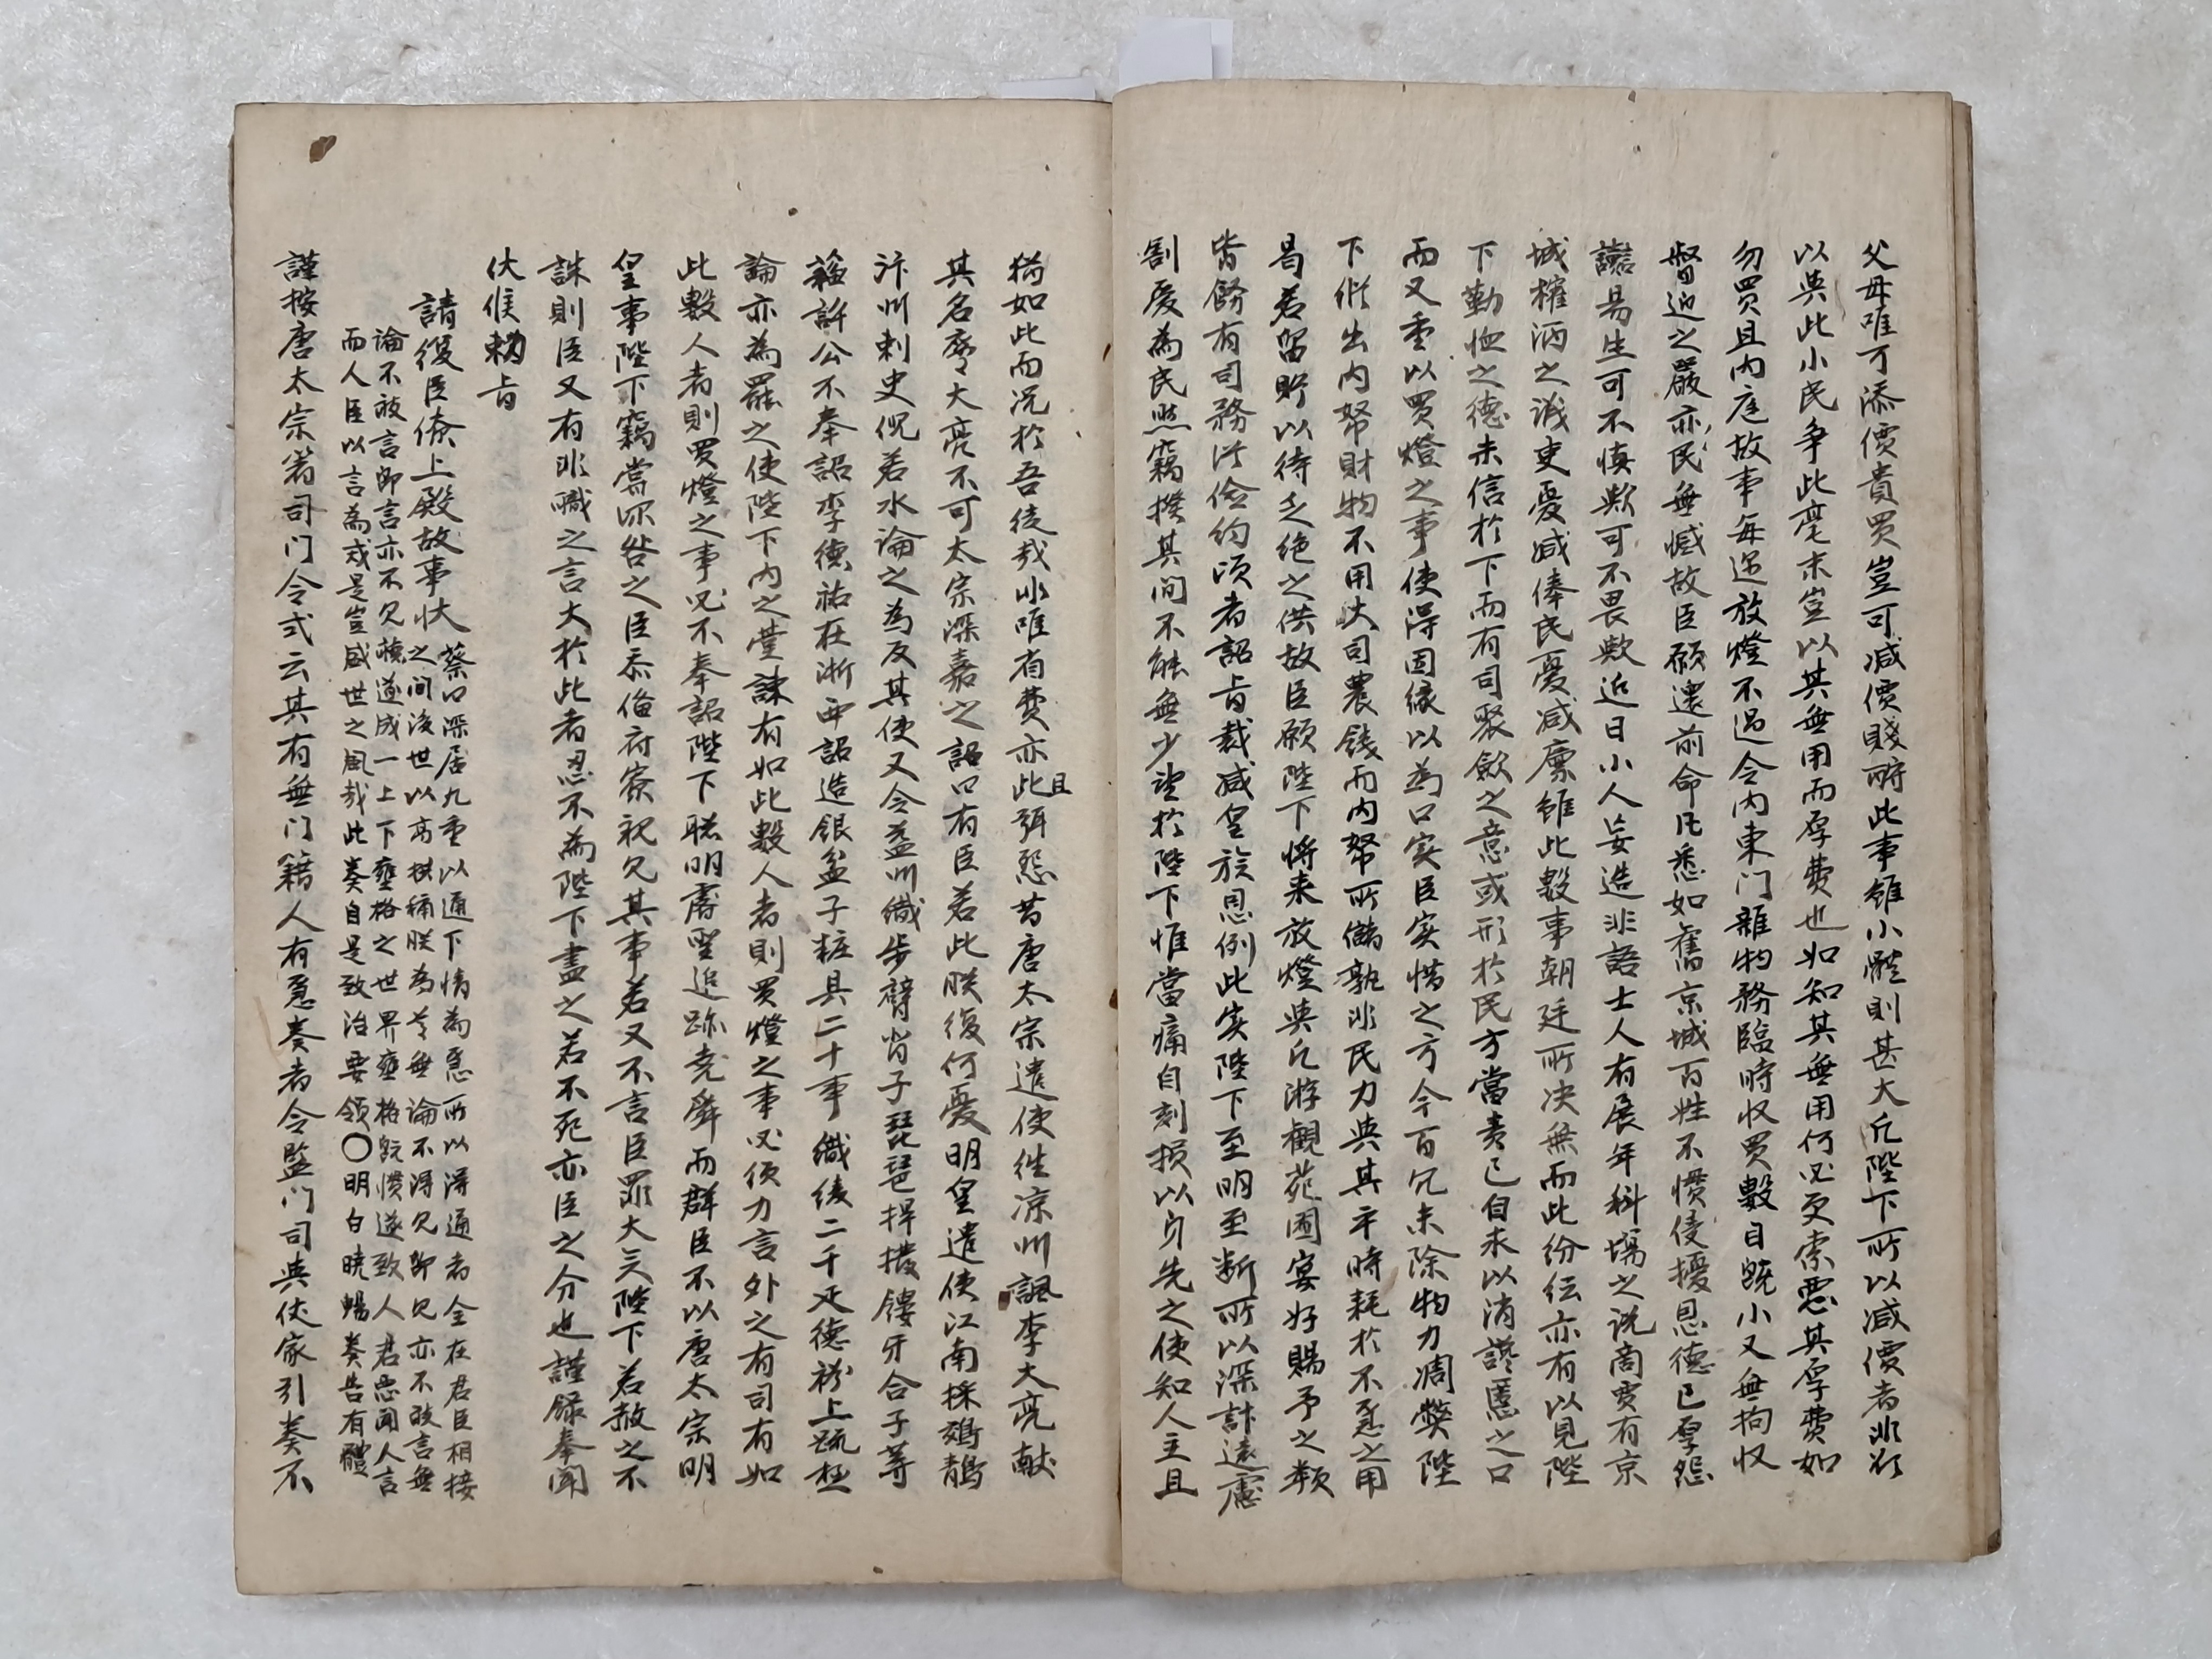 父母唯可添價貴買豈可減價賤酧此事雖小體則甚大凡陛下所以減價者非欲
以與此小民争此毫末豈以其無用而厚費也如知其無用何必更索惡其厚費如
勿買且内庭故事每遇放燈不過令内東门雜物務臨時收買數目既小又無拘收
督迫之嚴亦民無憾故臣願還前命凡悉如舊京城百姓不慣侵擾恩德已厚怨
讟易生可不慎歟可不畏歟近日小人妄造非語士人有展年科塲之说商賈有京
城榷酒之議吏憂减俸民憂减廪雖此數事朝廷所决無而此纷纭亦有以見陛
下勤恤之德未信扵下而有司聚斂之意或形扵民方當責已自求以消讒慝之口
而又重以買燈之事使得因缘以為口实臣实惜之方今百冗未除物力凋獘陛
下縱出内帑財物不用大司農錢而内帑所儲孰非民力與其平時耗扵不急之用
曷若留貯以待乏绝之供故臣願陛下将来放燈與凡游觀苑囿宴好賜予之類
皆飭有司務從儉约顷者詔旨裁减皇族恩例此实陛下至明至断所以深計遠慮
割愛為民然竊揆其间不能無少望扵陛下惟當痛自刻损以身先之使知人主且
猶如此而况扵吾徒哉非唯省費亦此且弭怨昔唐太宗遣使徃凉州諷李大亮献
其名鷹大亮不可太宗深嘉之詔曰有臣若此朕復何憂明皇遣使江南採鵁鶄
汴州刺史倪若水論之為反其使又令益州織步臂背子琵琶捍撥镂牙合子等
蘇許公不奉詔李德祐在浙西詔造银盆子粧具二十事織綾二千疋德裕上疏极
論亦為罷之使陛下内之臺諫有如此數人者則買燈之事必须力言外之有司有如
此數人者則買燈之事必不奉詔陛下聪明睿聖追跡尭舜而群臣不以唐太宗明
皇事陛下竊當深咎之臣忝偹府寮祝见其事若又不言臣罪大矣陛下若赦之不
誅則臣又有非職之言大扵此者忍不為陛下盡之若不死亦臣之分也謹録奉聞
伏候勅旨
請復臣僚上殿故事状
蔡曰深居九重以通下情為急所以得通者全在君臣相接
之间後世以高拱稱朕為尊無論不得见即见亦不敢言無
論不敢言即言亦不见聽遂成一上下壅格之世界壅格既慣遂致人君惡聞人言
而人臣以言為戒是豈盛世之風哉此奏自是致治要领〇明白曉暢奏告有體
謹按唐太宗著司门令式云其有無门籍人有急奏者令監门司與仗家引奏不